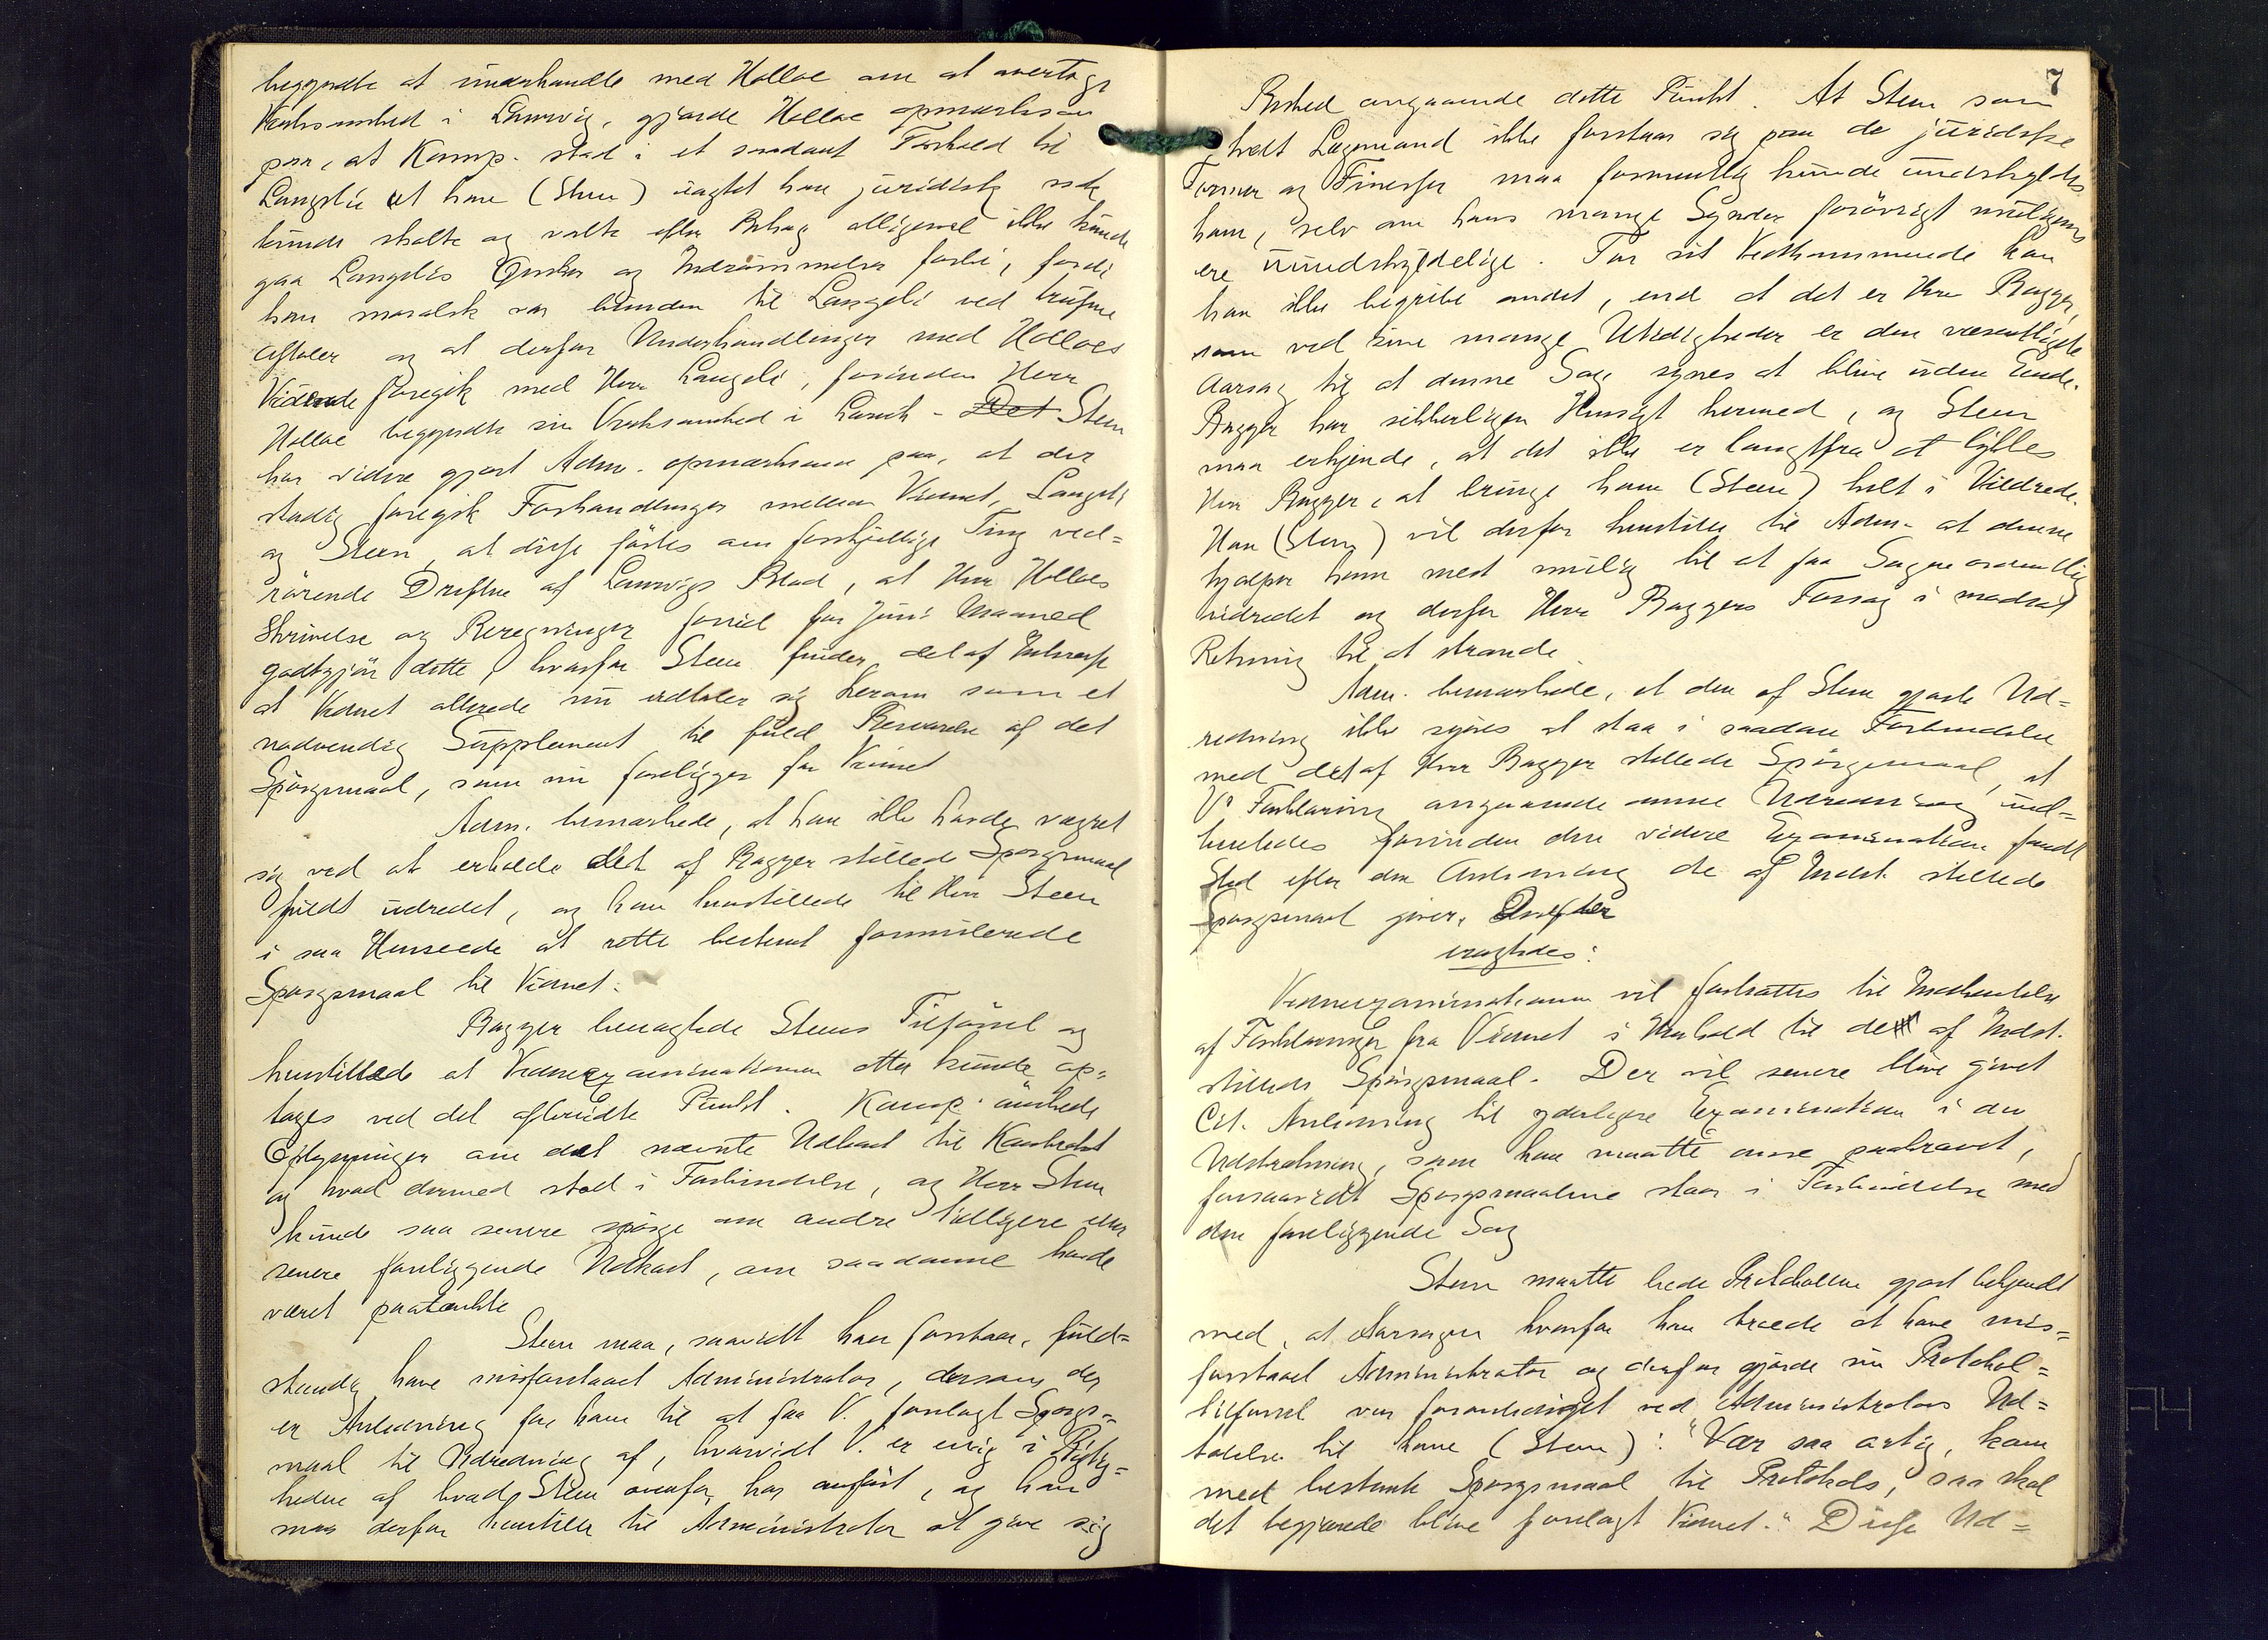 begyndte at underhandle med Holloe om at overtage
Virksomhed i Laurvig, gjorde Holloe opmærksom
paa, at Komp. stod i et saadant Forhold til
Langeli at han (Steen) uagtet han juridisk sek
kunde skalte og valte efter Behag alligevel ikke kunde
gaa Langelis Ønsker og Indrømmelser forbi, fordi
han moralsk var bunden til Langeli ved trufne
Aftaler og at derfor Underhandlinger med Holloes
Vidende foregik med Herr Langeli, forinden Herr
Holloe begyndte sin Virksomhed i Larvik - Det Steen
har videre gjort Adm. opmærksom paa, at der
stadig foregik Forhandlinger mellem Vidnet, Langeli
og Steen, at disse førtes om forskjellige Ting ved=
rørende Driften af Laurvigs Blad, at Herr Holloes
Skrivelse og Beregninger forud for Juni Maaned
godtgjør dette, hvorfor Steen finder det af Interesse
at Vidnet allerede nu udtaler sig herom som et
nødvendig Supplement til fuld Besvarelse af det
Spørgsmaal, som nu foreligger for Vidnet
Adm. bemærkede, at han ikke havde vægret
sig ved at erholde det af Bagger stillede Spørgsmaal
fuldt udredet, og han henstillede til Herr Steen
i saa Henseende at rette bestemt formulerede
Spørgsmaal til Vidnet.
Bagger benægtede Steens Tilførsel og
henstillede at Vidneexaminationen atter kunde op=
tages ved det afbrudte Punkt. Komp. ønskede
Oplysninger om det nævnte Udkast til Kontrakt
og hvad dermed stod i Forbindelse, og Herr Steen
kunde saa senere spørge om andre tidligere eller
senere foreliggende Udkast, om saadanne havde
været paatænkte
Steen maa, saavidt han forstaar, fuld=
stændig have misforstaaet Administrator, dersom der
er Anledning for ham til at faa V. forelagt Spørgs=
maal til Udredning af, hvorvidt V. er enig i Rigtig=
heden af hvad Steen ovenfor har anført, og han
maa derfor henstille til Administrator at give sig
7
Besked angaaende dette Punkt. At Steen som
helt Lægmand ikke forstaar sig paa de juridiske
Former og Finesser maa formentlig kunde undskyldes
ham, selv om hans mange Synder forøvrigt muligens
ere uundskyldelige. For sit Vedkommende kan
han ikke begribe andet, end at det er Herr Bagger,
som ved sine mange Utidigheder er den væsentligste
Aarsag til at denne Sag synes at blive uden Ende.
Bagger har sikkerligen Hensigt hermed, og Steen
maa erkjende, at det ikke er langtfra at lykkes
Herr Bagger, at bringe ham (Steen) helt i Vildrede.
Han (Steen) vil derfor henstille til Adm. at denne
hjælper ham mest mulig til at faa Sagen ordentlig
udredet og derfor Herr Baggers Forsøg i modsat
Retning til at strande.
Adm. bemærkede, at den af Steen gjorte Ud=
redning ikke synes at staa i saadan Forbindelse
med det af Herr Bagger stillede Spørgsmaal, at
V's Forklaring angaaende denne Udredning ind=
hentedes forinden den videre Examination fandt
Sted efter den Anledning de af Indst. stillede
Spørgsmaal giver. Derefter
vragtedes:
Vidneexaminationen vil fortsættes til Indhentelse
af Forklaringer fra Vidnet i Henhold til det af Indst.
stillede Spørgsmaal. Der vil senere blive givet
Cit. Anledning til yderligere Examination i den
Udstrækning, som han maatte anse paakrævet,
forsaavidt Spørgsmaalene staar i Forbindelse med
den foreliggende Sag
Steen maatte bede Protokollen gjort bekjendt
med, at Aarsagen hvorfor han troede at have mis=
forstaaet Administrator og derfor gjorde sin Protokol=
tilførsel var foranlediget ved Administrators Ud=
talelse til ham (Steen): "Vær saa artig, kom
med bestemte Spørgsmaal til Protokols, saa skal
det begjærede blive forelagt Vidnet." Disse Ud=